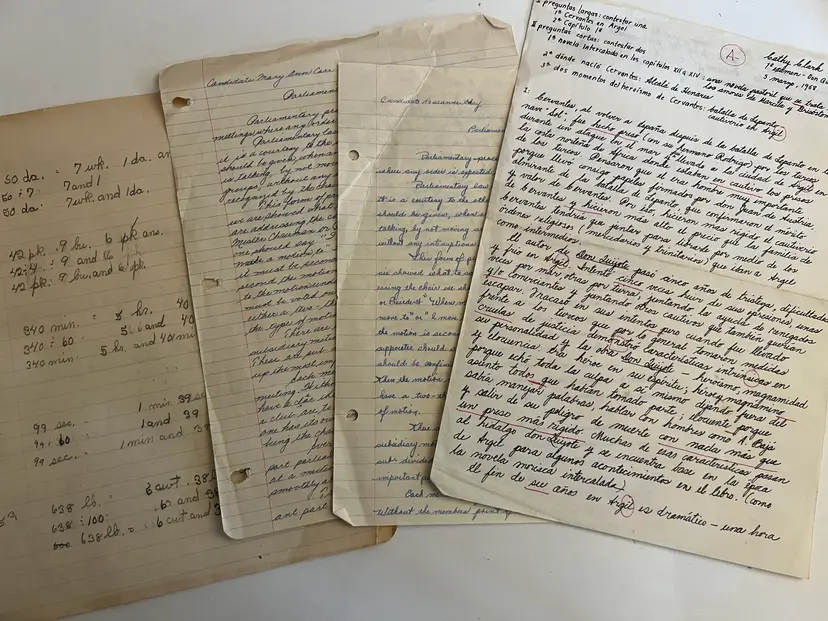 50 da. = 7 wk. 1 da. an
50 ÷ 7 = 7 and 1
50 da. 7 wk. and 1 da.
42 pk. = 9 bu. 6 pk ans.
42 ÷ 4 = 9 and 6
42 pk. = 9 bu. and 6 pk.
340 min. = 5 hr. 40
340 ÷ 60 = 5 and 40
340 min. 5 hr. and 40 min
99 sec. 1 min 39 sec
99 ÷ 60 1 and 39
99 sec. 1 min and 39
638 lb. = 6 cwt. 38 lb
638 ÷ 100 = 6 and 38
638 lb. = 6 cwt and 3
Candidate Mary Ann Carr
Parliamen
Parliamentary pro
meetings where any order
Parliamentary law
it is a courtesy to the
should be given, when
is talking, by not mov
groups, without any
recognized by the chair
This form of par
we are should what
are addressing the c
Mister Chairman or
one should say "
make a motion to"
it must be recon
second the motion
to the motion and
must be voted on
either a two-th
the type of motion
There are
subsidiary motio
These are sub
up the most im
Each me
meeting. Without
have a
a club are to
one has its own
being the cha
Every
part parlia
at a meeti
smoothly a
ant part
Candidate Roseanne
Parliamen
Parliamentary proce
where any order is expected
Parliamentary law
It is a courtesy to the oth
should be given, when a
talking, by not moving a
without any interruptions
This form of pa
we should what to sa
using the chair we sh
or President" When w
move to" or "I move
the motion is secon
supporter should
should be confin
When the motion
have a two-
of motion.
There
subsidiary mo
sub-divided
important
Each me
Without the members point of
I preguntas largas: contestar una
1ª Cervantes en Argel
2ª Capítulo 1º
II preguntas cortas: contestar dos
1ª novela intercalada en los capítulos XII a XIV: una novela pastoril que se trata de los amores de Marcela y Grisóstomo
2ª dónde nació Cervantes: Alcalá de Henares
3ª dos momentos del heroísmo de Cervantes: batalla de Lepanto, cautiverio en Argel
A-
Cathy Clark
1º exámen - Don Qu
5 marzo, 1968
I: Cervantes, al volver a España después de la batalla de Lepanto en la
nave "Sol", fue hecho preso (con su hermano Rodrigo) por los turcos
durante un ataque en el mar y llevado a la ciudad de Argil en
la costa norteña de África donde estaban en cautivo los presos
de los turcos. Pensaron que él era hombre muy importante
porque llevó consigo papeles firmados por don Juan de Austria,
almirante de la batalla de Lepanto, que confirmaron el mérito
y valor de Cervantes. Por eso, hicieron mas rígido el cautiverio
de Cervantes y hicieron más alto el precio que la familia de
Cervantes tendría que juntar para librarle por medio de los
órdenes religiosos (mercedarios y trinitarios) que iban a Argil
como intermedios.
El autor de Don Quijote pasó cinco años de tristeza, dificultades
y frío en Argil. Intentó cinco veces huir de sus opresiones, unas
veces por mar, otras por tierra, juntando la ayuda de renegados
y/o comerciantes y juntando otros cautivos que también querían
escapar. Fracasó en sus intentos pero cuando fue llevado
frente a los turcos que por lo general tomaron medidas
crueles de justicia demonstró características intrínsicas en
su personalidad y la obra Don Quijote — heroísmo, magnanimidad
y elocuencia: era héroe en su espíritu; héroe y magnánimo
porque echó toda la culpa a si mismo, dejando fuera del
asiento todos que habían tomado parte; elocuente porque
sabía manejar palabras, hablar con hombres como A. Bajá
y salir de su peligro de muerte con nada más que
un preso más rígido. Muchas de esas características pasan
al hidalgo don Quijote y se encuentra base en la época
de Argil para algunos acontecimientos en el libro. (como
la novela morisca intercalada)
El fin de su años en Argil es dramático — una hora